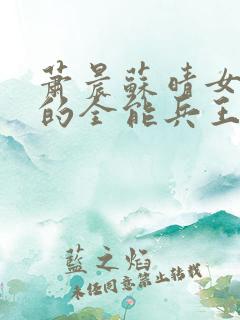 蕭晨蘇晴女
的全能兵王
藍之焰
未经同意禁止转载